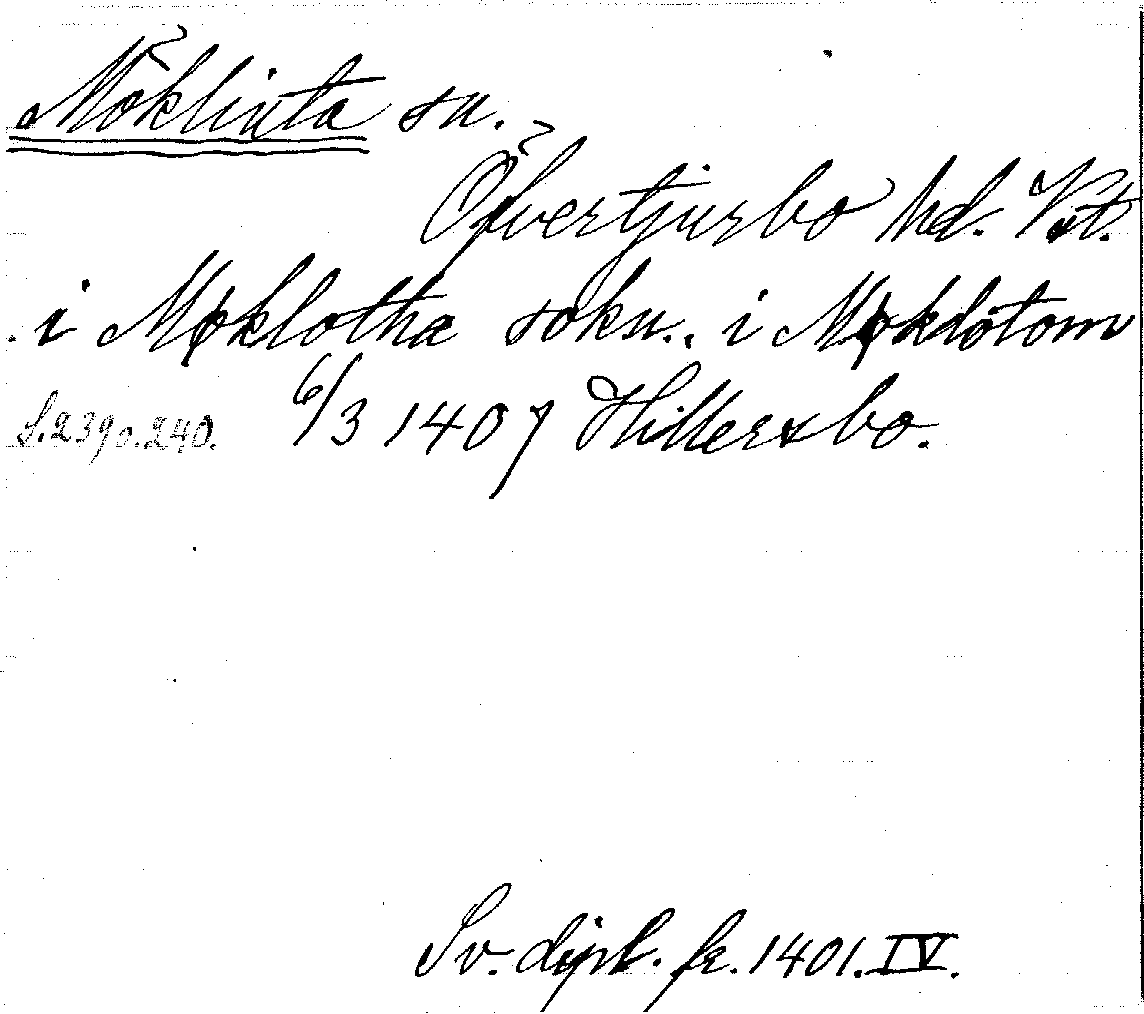 Möklinta sn.
Övertjurbo hd. Vst.
i Møklotha sokn., i Møklotom
S. 239 o. 240. 6/3 1407 Hillersbo.
Sv. dipl. fr. 1401. IV.